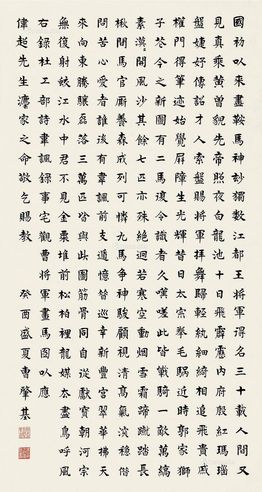 國初以來畫鞍馬神妙獨數江都王將軍得名三十載人間又
見真乘黃曾貌先帝照夜白龍池十日飛霹靂內府殷紅瑪瑙
盤婕妤傳詔才人索盤賜將軍拜舞歸輕紈細綺相追飛貴戚
權門得筆迹始覺屏障生光輝昔日太宗拳毛騧近時郭家獅
子花今之新圖有二馬復令識者久嘆嗟此皆戰騎一敵萬縞
素漠〻開風沙其餘七匹亦殊絕迥若寒空動煙雪霜蹄蹴踏長
楸間馬官廝養森成列可憐九馬爭神駿顧視清高氣深穩借
問苦心愛者誰後有韋諷前支遁憶昔巡幸新豐宮翠華拂天
來向東騰驤磊落三萬匹皆與此圖筋骨同自從獻寶朝河宗
無復射蛟江水中君不見金粟堆前松柏裏龍媒去盡鳥呼風
右錄杜工部詩韋諷錄事宅觀曹將軍畫馬圖以應
偉超先生瀛家之命敬乞賜教 癸酉盛夏曹肇基